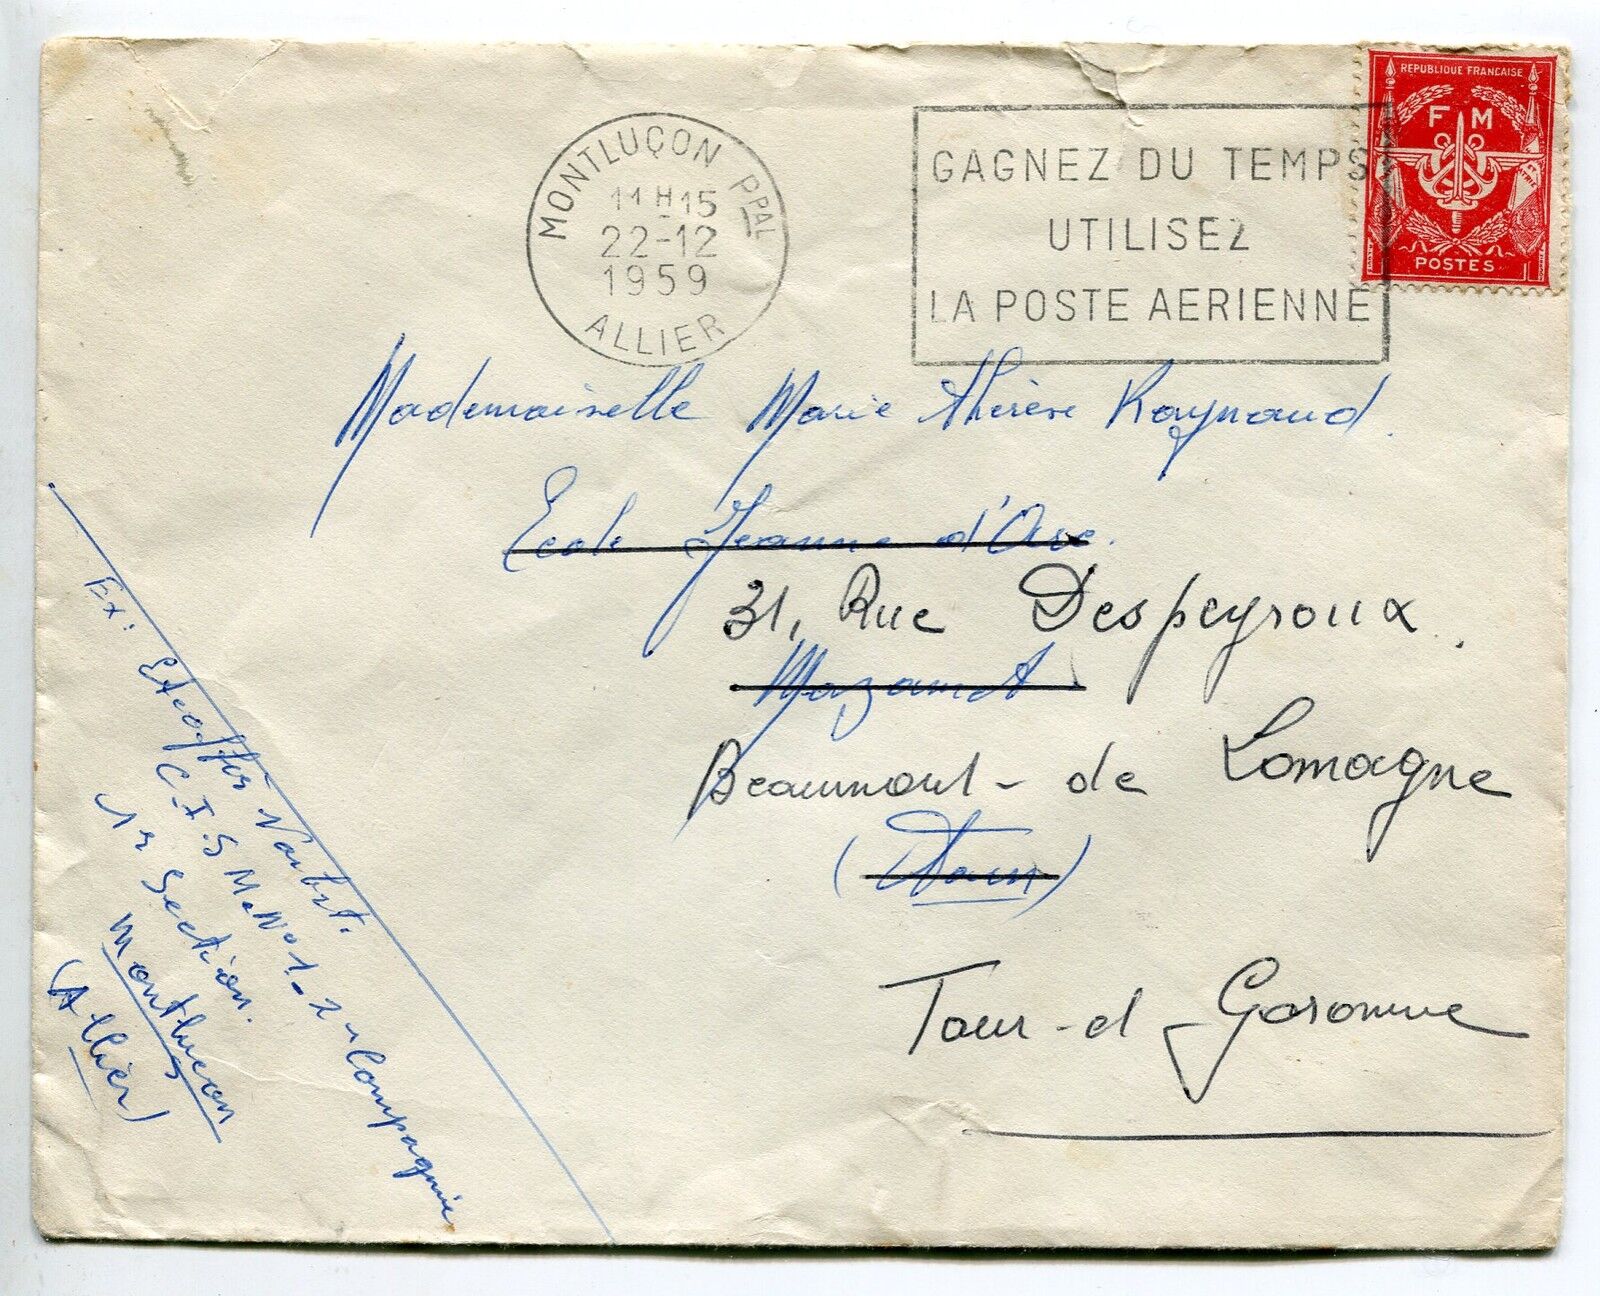 REPUBLIQUE FRANCAISE
F M
POSTES
MONTLUÇON PPAL
11H15
22-12
1959
ALLIER
GAGNEZ DU TEMPS
UTILISEZ
LA POSTE AERIENNE
Mademoiselle Marie Thérèse Raynaud.
Ecole Jeanne d'Arc.
31, Rue Despeyroux.
Mazamet
Beaumont-de Lomagne
(Tarn)
Tarn-et Garonne
Ex: Norbert.
C.I.S.M. N°1-2e Compagnie
1re Section.
Montluçon
(Allier)